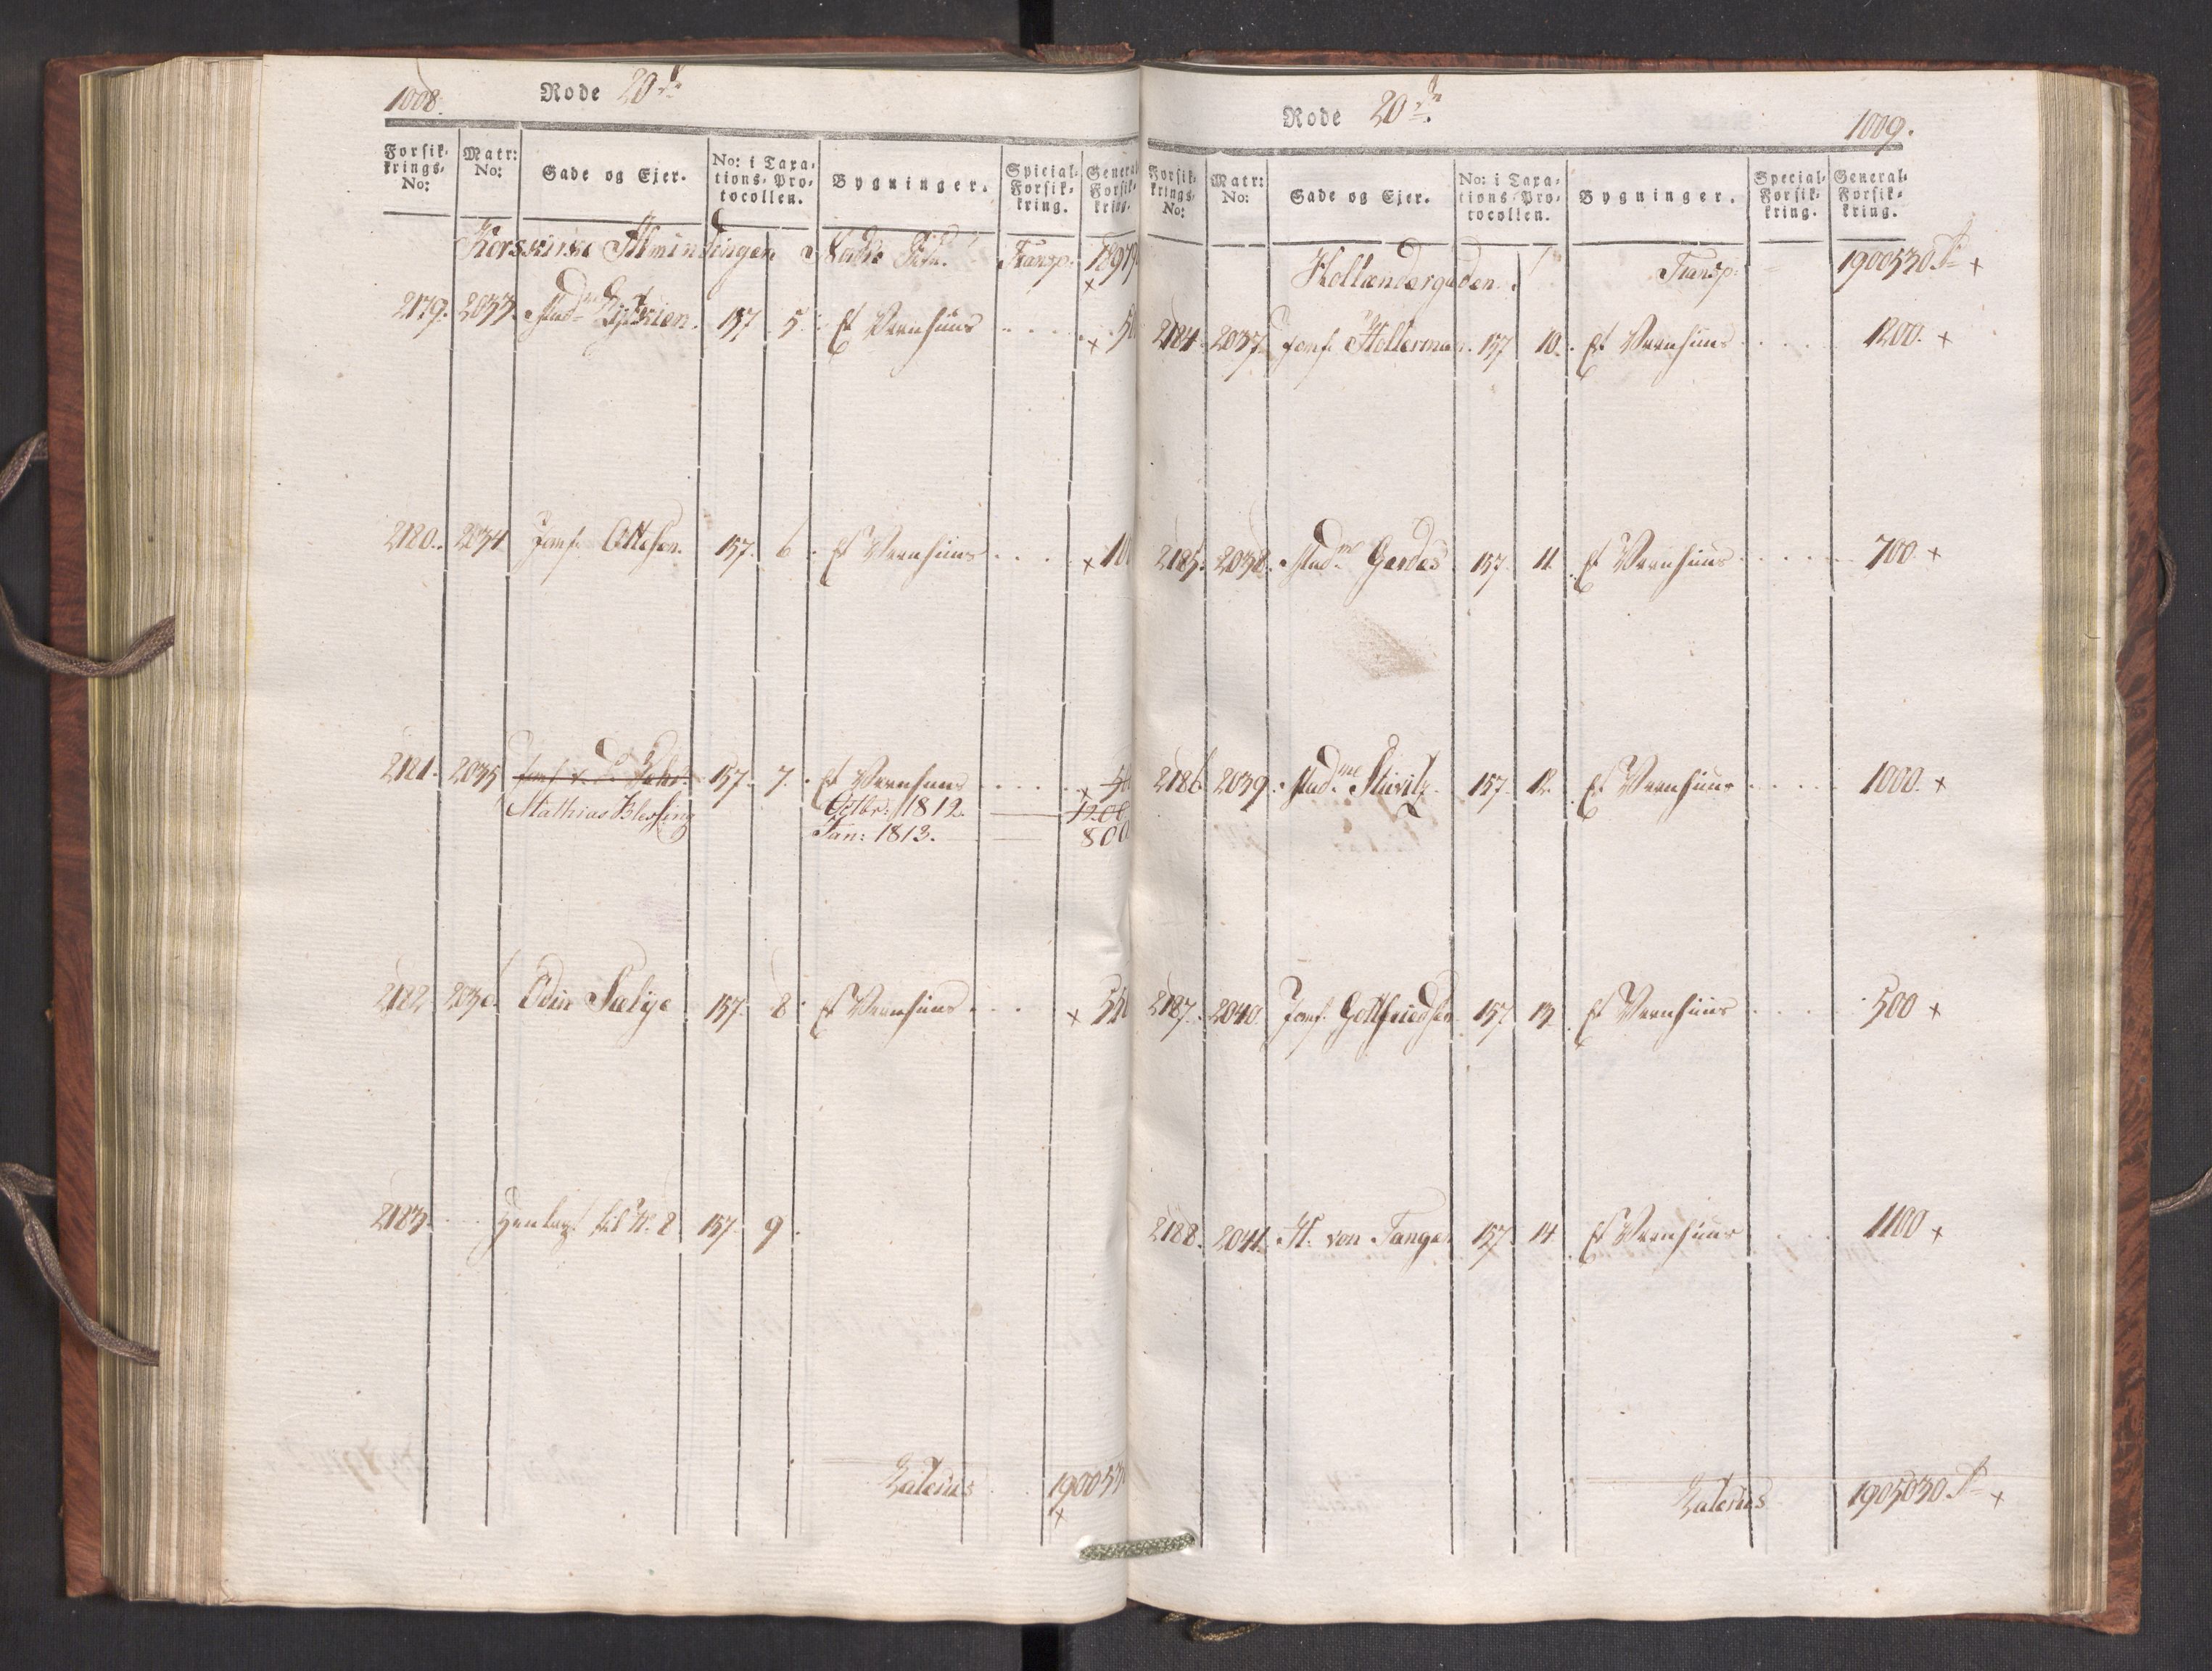 1008.
Rode 20de
Forsik-
krings-
No:
Matr:
No:
Gade og Ejer.
No: i Taxa-
tions-Pro-
tocollen.
Bygninger.
Special-
Forsik-
kring.
General
Forsik-
kring.
Korskirke Almindingen Transp: 1897
2179. 2033. Mad.me 157 5. Et Vaanhuus
2180. 2034 Jomf: Ottesen. 157. 6. Et Vaanhuus × 10
2181. 2035 157. 7. Et Vaanhuus ×
Mathias Blessing Octbr: 1812. 1200
Jan: 1813. 800
2182 2036. Odin Sælije 157. 8. Et Vaanhuus × 55
2183. Henlagt til No. 8 157. 9.
Lateris 190053
×
Rode 20de
1009.
Forsik-
krings-
No:
Matr:
No:
Gade og Ejer.
No: i Taxa-
tions-Pro-
tocollen.
Bygninger.
Special-
Forsik-
kring.
General-
Forsik-
kring.
Hollændergaden. Transp: 1900530 ×
2184. 2037. Jomf: Hollerman. 157 10. Et Vaanhuus 1200. ×
2185. 2038. Mad.me Gerdes 157. 11. Et Vaanhuus 700. ×
2186. 2039. Mad.me Stüvitz. 157. 12. Et Vaanhuus 1000. ×
2187. 2040. Jomf. Gottfriedsen 157. 13. Et Vaanhuus 500 ×
2188. 2041. H. von Tangen 157. 14 Et Vaanhuus 1100 ×
Lateris 1905030 ×